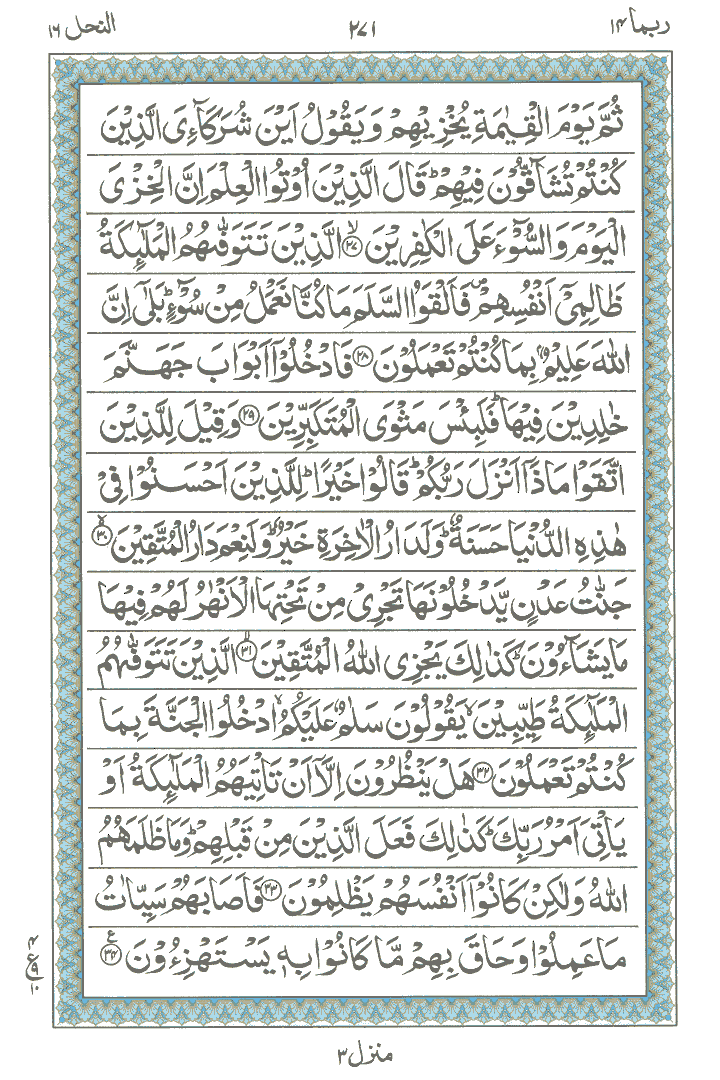 ربما ۱۴ ۲۷۱ النحل ۱۶
ثُمَّ یَوۡمَ الۡقِیٰمَۃِ یُخۡزِیۡہِمۡ وَ یَقُوۡلُ اَیۡنَ شُرَکَآءِیَ الَّذِیۡنَ
کُنۡتُمۡ تُشَآقُّوۡنَ فِیۡہِمۡ ؕ قَالَ الَّذِیۡنَ اُوۡتُوا الۡعِلۡمَ اِنَّ الۡخِزۡیَ
الۡیَوۡمَ وَ السُّوۡٓءَ عَلَی الۡکٰفِرِیۡنَ ﴿ۙ۲۷﴾ الَّذِیۡنَ تَتَوَفّٰىہُمُ الۡمَلٰٓئِکَۃُ
ظَالِمِیۡۤ اَنۡفُسِہِمۡ ۪ فَاَلۡقَوُا السَّلَمَ مَا کُنَّا نَعۡمَلُ مِنۡ سُوۡٓءٍ ؕ بَلٰۤی اِنَّ
اللّٰہَ عَلِیۡمٌۢ بِمَا کُنۡتُمۡ تَعۡمَلُوۡنَ ﴿۲۸﴾ فَادۡخُلُوۡۤا اَبۡوَابَ جَہَنَّمَ
خٰلِدِیۡنَ فِیۡہَا ؕ فَلَبِئۡسَ مَثۡوَی الۡمُتَکَبِّرِیۡنَ ﴿۲۹﴾ وَ قِیۡلَ لِلَّذِیۡنَ
اتَّقَوۡا مَاذَاۤ اَنۡزَلَ رَبُّکُمۡ ؕ قَالُوۡا خَیۡرًا ؕ لِلَّذِیۡنَ اَحۡسَنُوۡا فِیۡ
ہٰذِہِ الدُّنۡیَا حَسَنَۃٌ ؕ وَ لَدَارُ الۡاٰخِرَۃِ خَیۡرٌ ؕ وَ لَنِعۡمَ دَارُ الۡمُتَّقِیۡنَ ﴿ۙ۳۰﴾
جَنّٰتُ عَدۡنٍ یَّدۡخُلُوۡنَہَا تَجۡرِیۡ مِنۡ تَحۡتِہَا الۡاَنۡہٰرُ لَہُمۡ فِیۡہَا
مَا یَشَآءُوۡنَ ؕ کَذٰلِکَ یَجۡزِی اللّٰہُ الۡمُتَّقِیۡنَ ﴿ۙ۳۱﴾ الَّذِیۡنَ تَتَوَفّٰىہُمُ
الۡمَلٰٓئِکَۃُ طَیِّبِیۡنَ ۙ یَقُوۡلُوۡنَ سَلٰمٌ عَلَیۡکُمُ ۙ ادۡخُلُوا الۡجَنَّۃَ بِمَا
کُنۡتُمۡ تَعۡمَلُوۡنَ ﴿۳۲﴾ ہَلۡ یَنۡظُرُوۡنَ اِلَّاۤ اَنۡ تَاۡتِیَہُمُ الۡمَلٰٓئِکَۃُ اَوۡ
یَاۡتِیَ اَمۡرُ رَبِّکَ ؕ کَذٰلِکَ فَعَلَ الَّذِیۡنَ مِنۡ قَبۡلِہِمۡ ؕ وَ مَا ظَلَمَہُمُ
اللّٰہُ وَ لٰکِنۡ کَانُوۡۤا اَنۡفُسَہُمۡ یَظۡلِمُوۡنَ ﴿۳۳﴾ فَاَصَابَہُمۡ سَیِّاٰتُ
مَا عَمِلُوۡا وَ حَاقَ بِہِمۡ مَّا کَانُوۡا بِہٖ یَسۡتَہۡزِءُوۡنَ ﴿٪۳۴﴾
۴
ع ۹
۱۰
منزل ۳